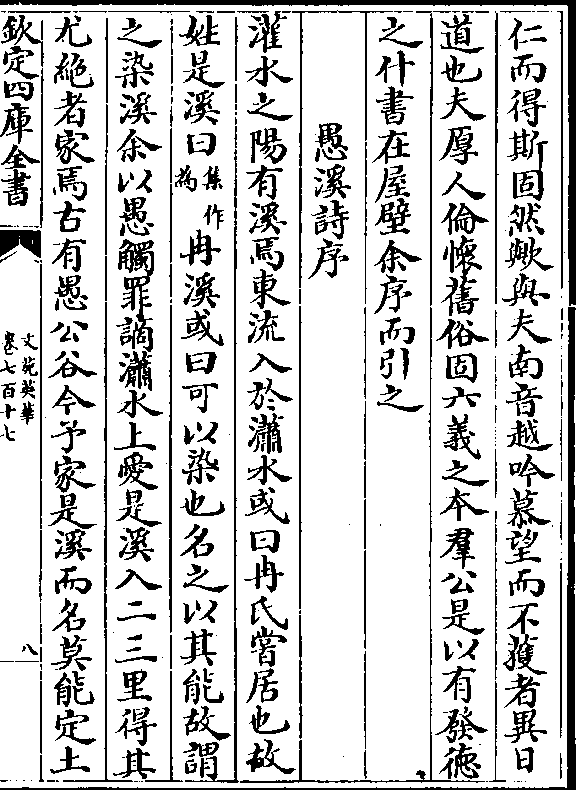 仁而得斯固然歟與夫南音越吟慕望而不獲者異日
道也夫厚人倫懷舊俗固六義之本羣公是以有發徳
之什書在屋壁余序而引之
愚溪詩序
灌水之陽有溪焉東流入於瀟水或曰冉氏嘗居也故
姓是溪曰集作為冉溪或曰可以染也名之以其能故謂
之染溪余以愚觸罪謫瀟水上愛是溪入二三里得其
尤絶者家焉古有愚公谷今予家是溪而名莫能定土
欽定四庫全書
文苑英華
卷七百十七
八